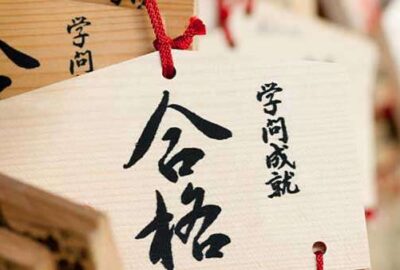 学問
合格
学問成就